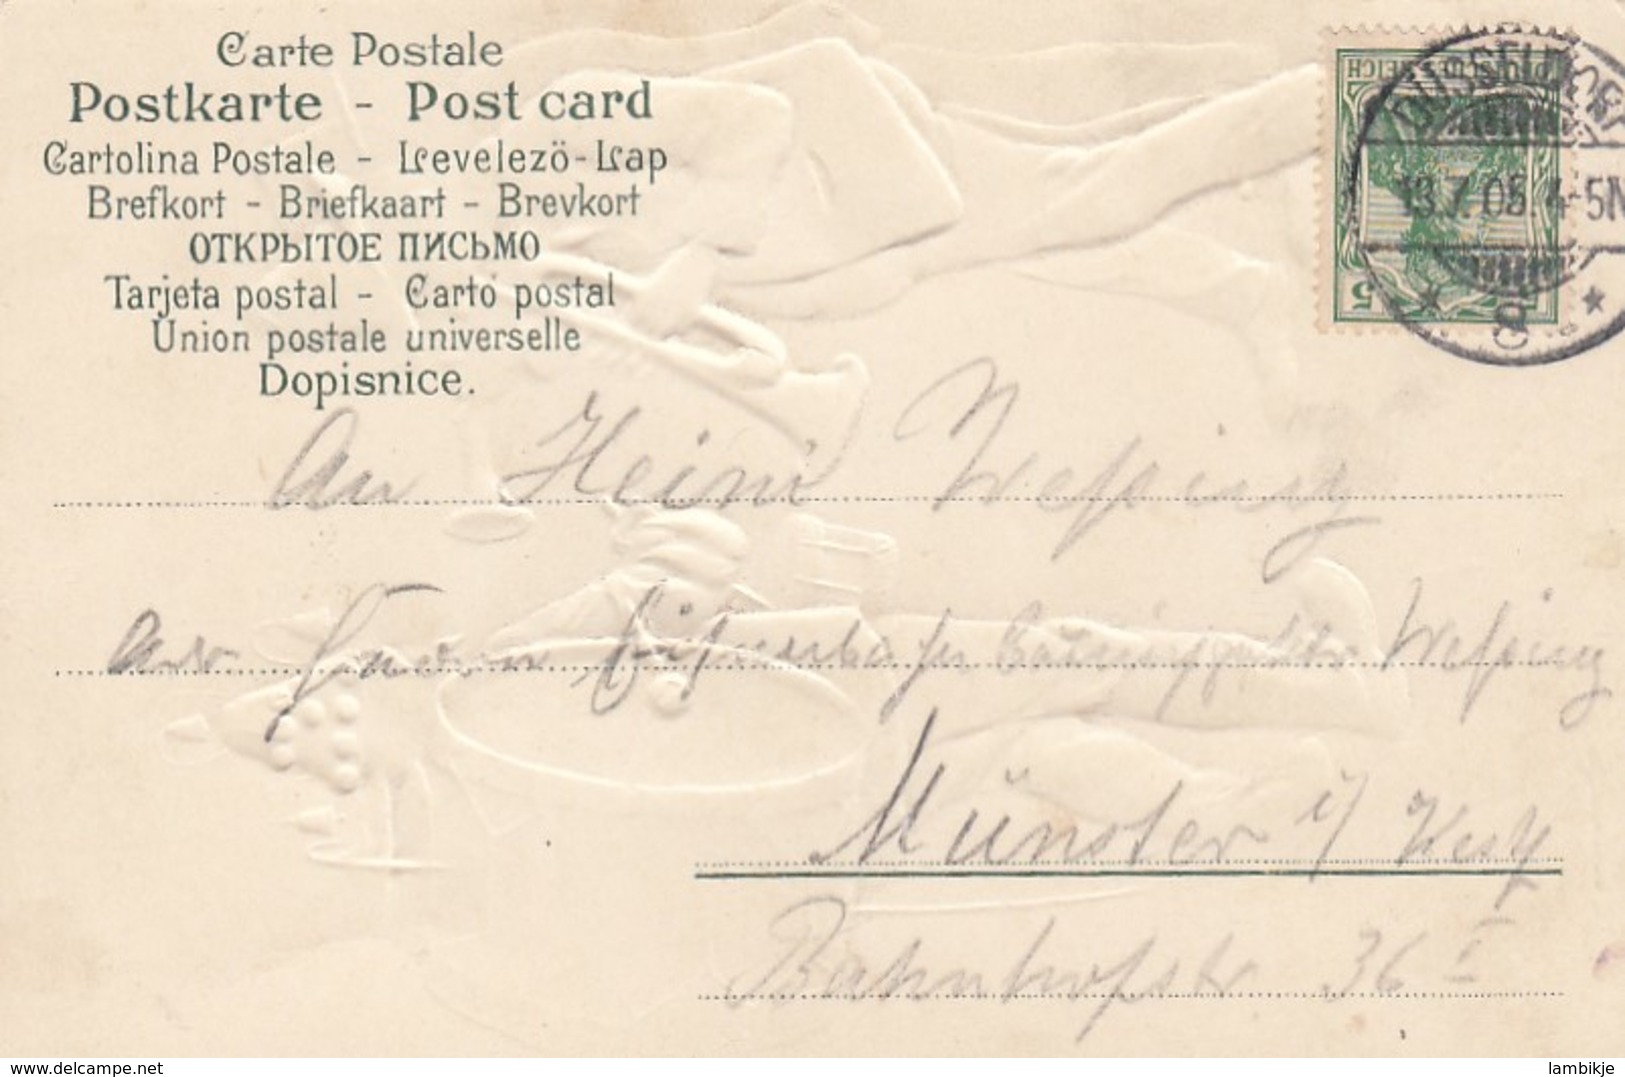 Carte Postale
Postkarte - Post card
Cartolina Postale - Levelezö-Lap
Brefkort - Briefkaart - Brevkort
ОТКРЫТОЕ ПИСЬМО
Tarjeta postal - Carto postal
Union postale universelle
Dopisnice.
DEUTSCHES REICH
5
DÜSSELDORF
13.7.05.4-5N
An Heini Wessing
Adr Herrn Eisenbahn Wessing
Münster i/ Westf
Bahnhofstr 36 I
www.delcampe.net
lambikje